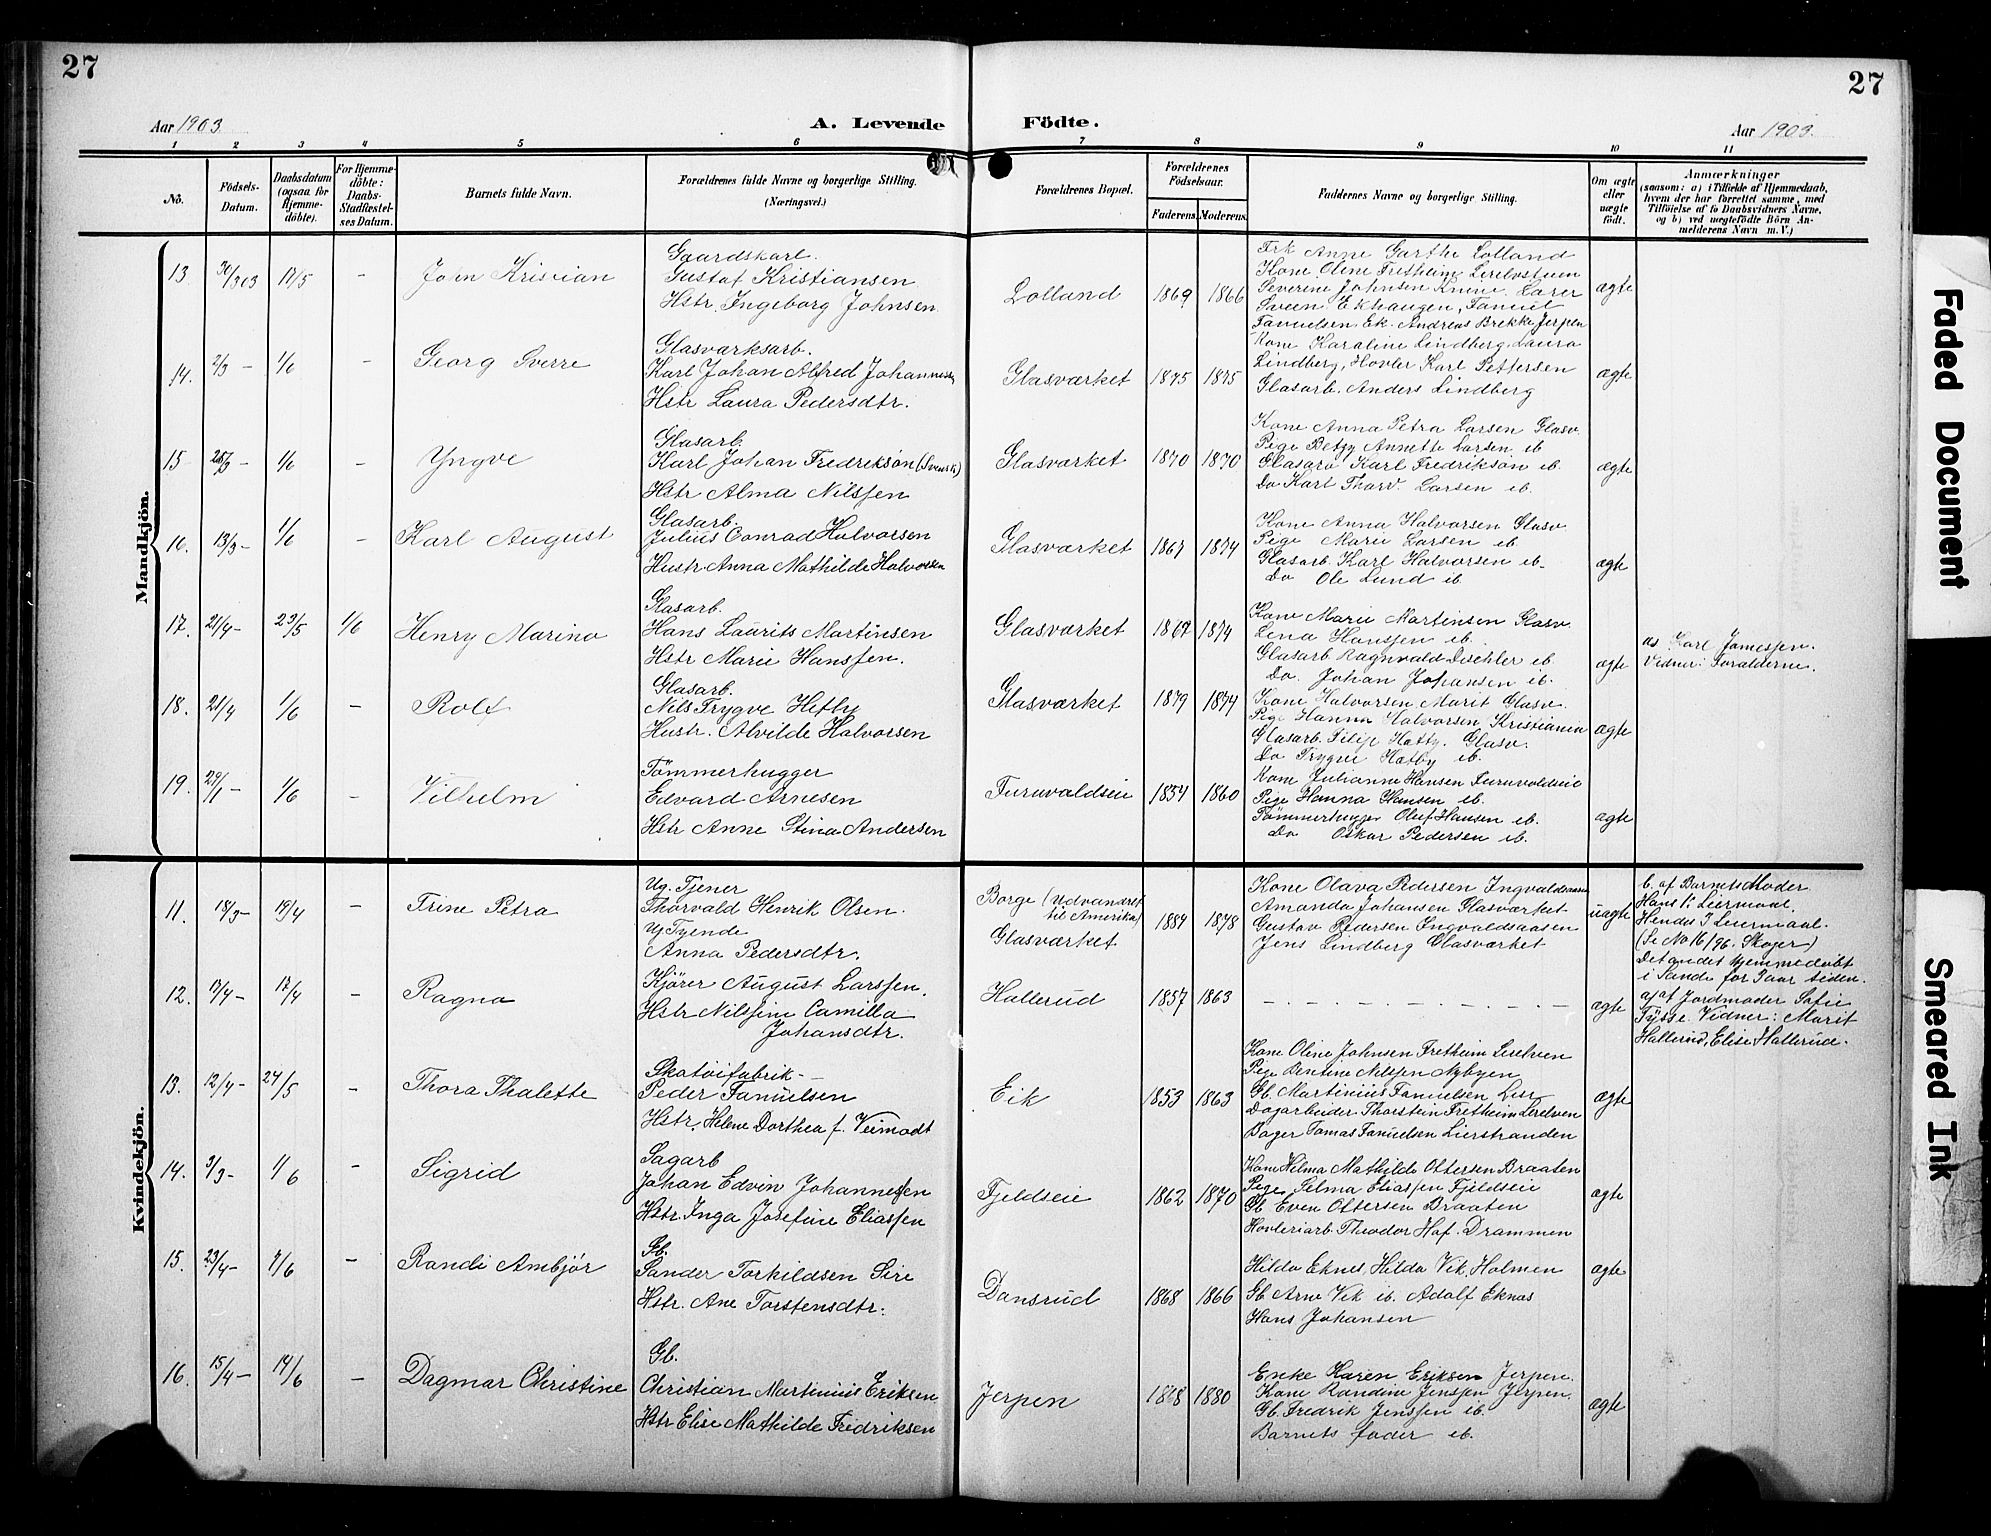 27
27
Aar 1903.
A. Levende Födte.
Aar 1903.
1 2 3 4 5 6 7 8 9 10 11
No.
Födsels-
Datum.
Daabsdatum
(ogsaa for
Hjemme-
döbte).
For Hjemme-
döbte:
Daabs-
Stadfæstel-
ses Datum.
Barnets fulde Navn.
Forældrenes fulde Navne og borgerlige Stilling.
(Næringsvei.)
Forældrenes Bopæl.
Forældrenes
Födselsaar.
Faderens.
Moderens.
Faddernes Navne og borgerlige Stilling.
Om ægte
eller
uægte
födt.
Anmærkninger
(saasom: a) i Tilfælde af Hjemmedaab,
hvem der har forrettet samme, med
Tilföielse af to Daabsvidners Navne,
og b) ved uægtefödte Börn An-
melderens Navn m. V.)
Mandkjön.
13 30/3 03 17/5 –
Gaardskarl.
Gustaf Kristiansen
Hstr. Ingeborg Johnsen
Lolland 1869 1866
Frk Anne Garthe Lolland
Kone Oline Fretheim
Severine Johnsen
Andreas Brekke Jerpen
ægte
14. 2/3 – 1/6 – Georg Sverre
Glasværksarb.
Karl Johan Alfred
Hstr Laura Pedersdtr.
Glasværket 1875 1875
Kone Karaline Lindberg, Laura
Lindberg, Hovler Karl Pettersen
Glasarb. Anders Lindberg
ægte
15 1/6 – Yngve
Glasarb.
Karl Johan Fredrikson (Svensk)
Hstr Alma Nilssen
Glasværket 1870 1870
Kone Anna Petra Larsen Glasv.
Pige Betzy Annette Larsen ib
Glasarb Karl Fredrikson ib.
Do Karl Thorv. Larsen ib.
ægte
16. 13/3 – 1/6 – Karl August
Glasarb.
Julius Conrad Halvorsen
Hustr. Anna Mathilde Halvorsen
Glasværket 1867 1874
Kone Anna Halvorsen Glasv
Pige Marie Larsen ib
Glasarb. Karl Halvorsen ib.
Do Ole Lund ib.
ægte
17. 21/4 – 23/5 1/6 Henry Marino
Glasarb.
Hans Laurits Martinsen
Hstr Marie Hanssen.
Glasværket 1867 1874
Kone Marie Martinsen Glasv.
Lena Hanssen ib.
Glasarb Ragnvald ib.
Do. Johan Johansen ib.
ægte
Vidner: Forælderne.
18. 21/4 1/6 – Rolf
Glasarb.
Nils Trygve
Hustr. Alvilde Halvorsen
Glasværket 1879 1874
Kone Halvorsen Marit Glasv.
Pige Hanna Halvorsen Kristiania
Glasarb. Glasv.
Do Trygve ib.
ægte
19. 29/1 – 1/6 – Vilhelm
Tömmerhugger
Edvard Arnesen
Hstr Anne Stina Andersen
Furuvaldseie 1854 1860
Kone Julianne Hansen Furuvoldseie
Pige Hanna Hansen ib.
Tömmerhugger Oluf Hansen ib.
Do Oskar Pedersen ib.
ægte
Kvindekjön.
11. 18/3 – 19/4 – Trine Petra
Ug. Tjener
Thorvald Henrik Olsen.
Anna Pedersdtr.
Borge (Udvandret
til Amerika)
Glasværket 1884 1878
Kone Olava Pedersen Ingvaldsaasen
Amanda Johansen Glasværket
Gustav Pedersen Ingvaldsaasen
Jens Lindberg Glasværket
uægte
b. af Barnets Moder
Hans 1ste Leiermaal.
(Se No 16/96. Skoger)
Det andet hjemmedöbt
i Sande for siden.
12. 17/4 – 17/4 – Ragna
Kjörer August Larssen.
Hstr Nilssine Camilla
Johansdtr.
Hallerud 1857 1863
ægte
a) af Jordmoder
Vidner: Marit
Hallerud, Elise Hallerud.
13. 12/4 – 24/5 – Thora Thalette
Skotöifabrik –
Peder Fanuelsen
Hstr. Helene Dorthea f. Veimodt
Eik 1853 1863
Kone Oline Johnsen Fretheim Lierelven
Pige Bentine Nilssen Nybyen
Gb. Martinius Fanuelsen Lier
Dagarbeider Thorstein Fretheim Lierelven
Bager Tomas Fanuelsen Lierstranden
ægte
14. 3/3 – 1/6 – Sigrid
Sagarb
Johan Edvin Johannessen
Hstr. Inga Josefine Eliassen
Fjeldseie 1862 1870
Kone Hilma Mathilde Ottersen Braaten
Pige Selma Eliassen Fjeldseie
Gb Even Ottersen Braaten
Theodor Drammen
ægte
15. 23/4 – 7/6 – Randi Ambjör
Gb.
Sander Torkildsen Sire
Hstr. Ane Torstensdtr.
Dansrud 1868 1866
Hilda Eknes, Hilda Vik, Holmen
Gb Arne Vik ib. Adolf Eknas
Hans Johansen
ægte
16. 15/4 – 14/6 – Dagmar Christine
Gb.
Christian Martinius Eriksen
Hstr Elise Mathilde Fredriksen
Jerpen 1868 1880
Enke Karen Eriksen Jerpen.
Kone Randine Jenssen Jerpen.
Gb. Fredrik Jenssen ib.
Barnets fader ib.
ægte
Faded Document
Smeared Ink